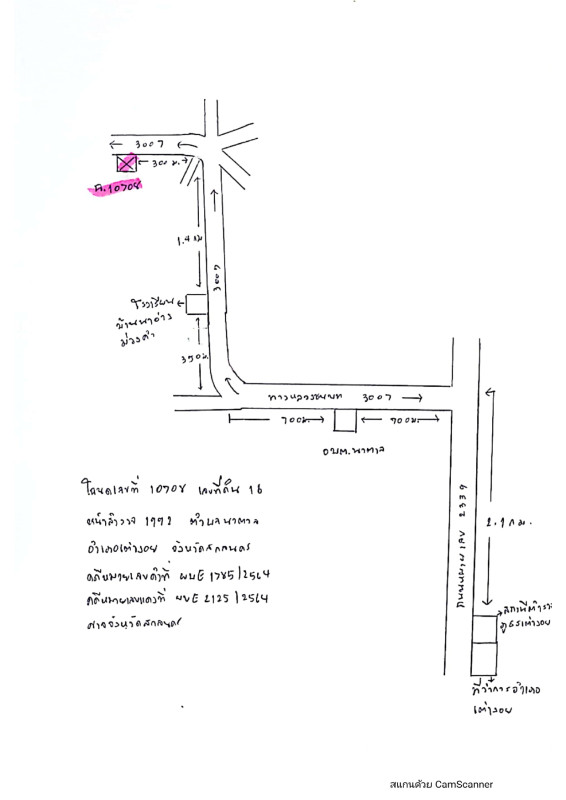 ← 3007 ←
← 300 ม. →
ฉ.10708
1.4 กม
3007
โรงเรียน
บ้านนาอ่าง
ม่วงคำ
350 ม.
ทางหลวงชนบท 3007 →
700 ม.
900 ม.
อบต.นาตาล
ถนนหมายเลข 2339
2.1 กม.
สถานีตำรวจ
ภูธรเต่างอย
ที่ว่าการอำเภอ
เต่างอย
โฉนดเลขที่ 10708 เลขที่ดิน 16
หน้าสำรวจ 1992 ตำบลนาตาล
อำเภอเต่างอย จังหวัดสกลนคร
คดีหมายเลขดำที่ ผบE 1785/2564
คดีหมายเลขแดงที่ ผบE 2125/2564
ศาลจังหวัดสกลนคร
สแกนด้วย CamScanner